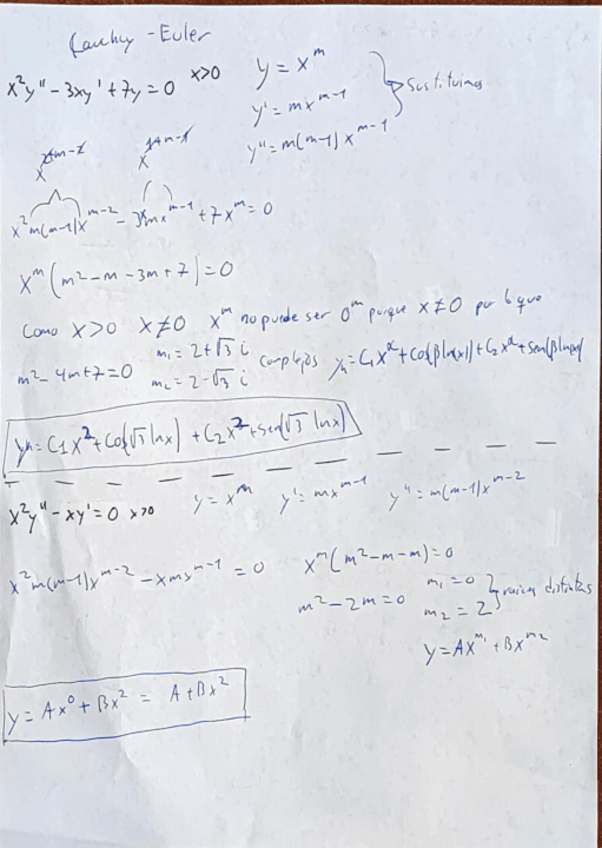 Cauchy - Euler
x²y'' - 3xy' + 7y = 0 x>0
y = x^m
y' = mx^(m-1)
y'' = m(m-1) x^(m-1)
Sustituimos
x^(2+m-2) x^(1+m-1)
x² m(m-1)x^(m-2) - 3xmx^(m-1) + 7x^m = 0
x^m (m² - m - 3m + 7) = 0
Como x>0 x≠0 x^m no puede ser 0^m porque x≠0 por lo que
m² - 4m + 7 = 0 m₁ = 2+√3 i m₂ = 2-√3 i complejos yₕ = C₁x^α + Cos(β ln(x)) + C₂x^α + sen(β ln(x))
yₕ = C₁x² + Cos(√3 ln x) + C₂x² + sen(√3 ln x)
x²y'' - xy' = 0 x>0 y = x^m y' = mx^(m-1) y'' = m(m-1)x^(m-2)
x² m(m-1)x^(m-2) - xmx^(m-1) = 0 x^m (m² - m - m) = 0
m² - 2m = 0 m₁ = 0 m₂ = 2 raices distintas
y = Ax^m₁ + Bx^m₂
y = Ax⁰ + Bx² = A + Bx²